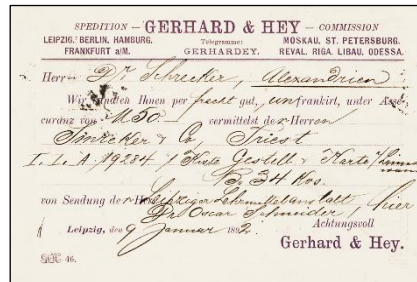 SPEDITION — GERHARD & HEY — COMMISSION
LEIPZIG, BERLIN, HAMBURG. Telegramme: MOSKAU, ST. PETERSBURG.
FRANKFURT a/M. GERHARDEY. REVAL, RIGA, LIBAU, ODESSA.
Herrn Dr Schrecker, Alexandrien
Wir senden Ihnen per fracht gut, unfrankirt, unter Asse-
curanz von M 50.— vermittelst der Herren
& Co Triest
I. L. A. 19284 / Kiste Gestell & Karte /
Bo 34 Kos.
von Sendung der Herren Leipziger Lehrmittelanstalt
Dr Oscar Schneider, hier
Achtungsvoll
Leipzig, den 9 Januar 1892.
Gerhard & Hey.
46.